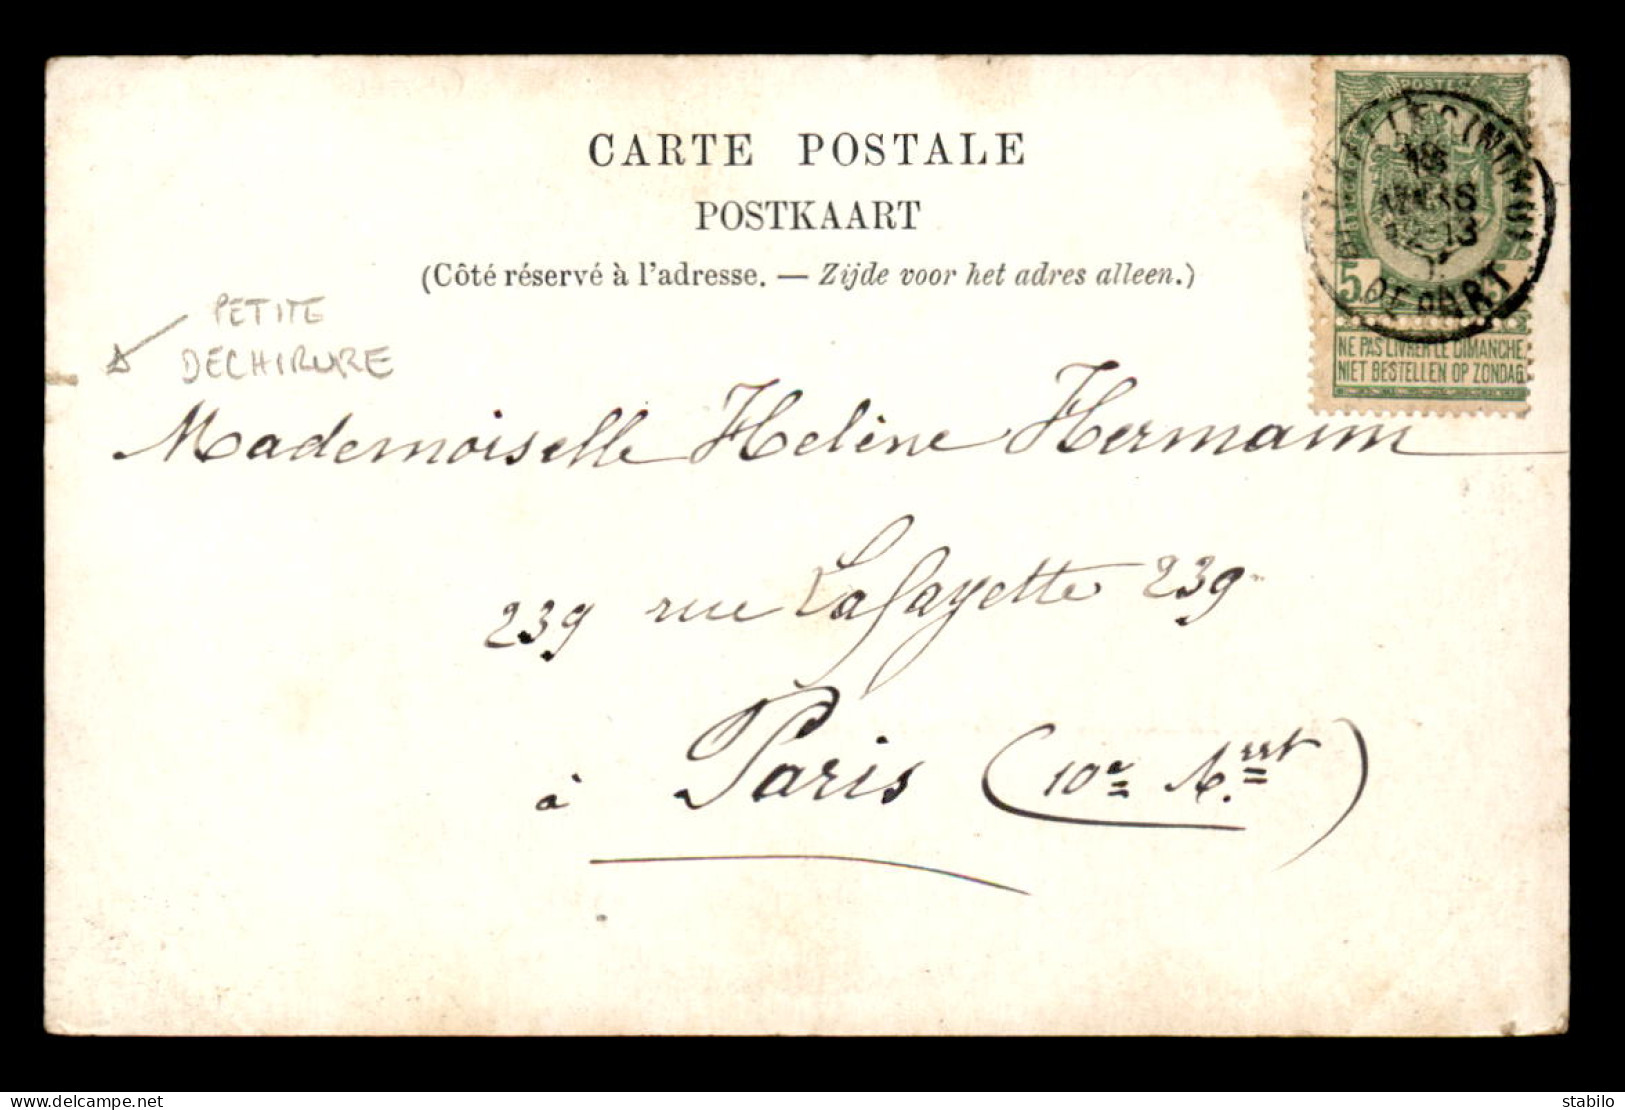 CARTE POSTALE
POSTKAART
(Côté réservé à l'adresse. — Zijde voor het adres alleen.)
POSTES
18
MARS
12-13
DEPART
5
NE PAS LIVRER LE DIMANCHE
NIET BESTELLEN OP ZONDAG
PETITE
DECHIRURE
Mademoiselle Helène Hermann
239 rue Lafayette 239
à Paris (10e Arrt)
Delcampe.net
stabilo